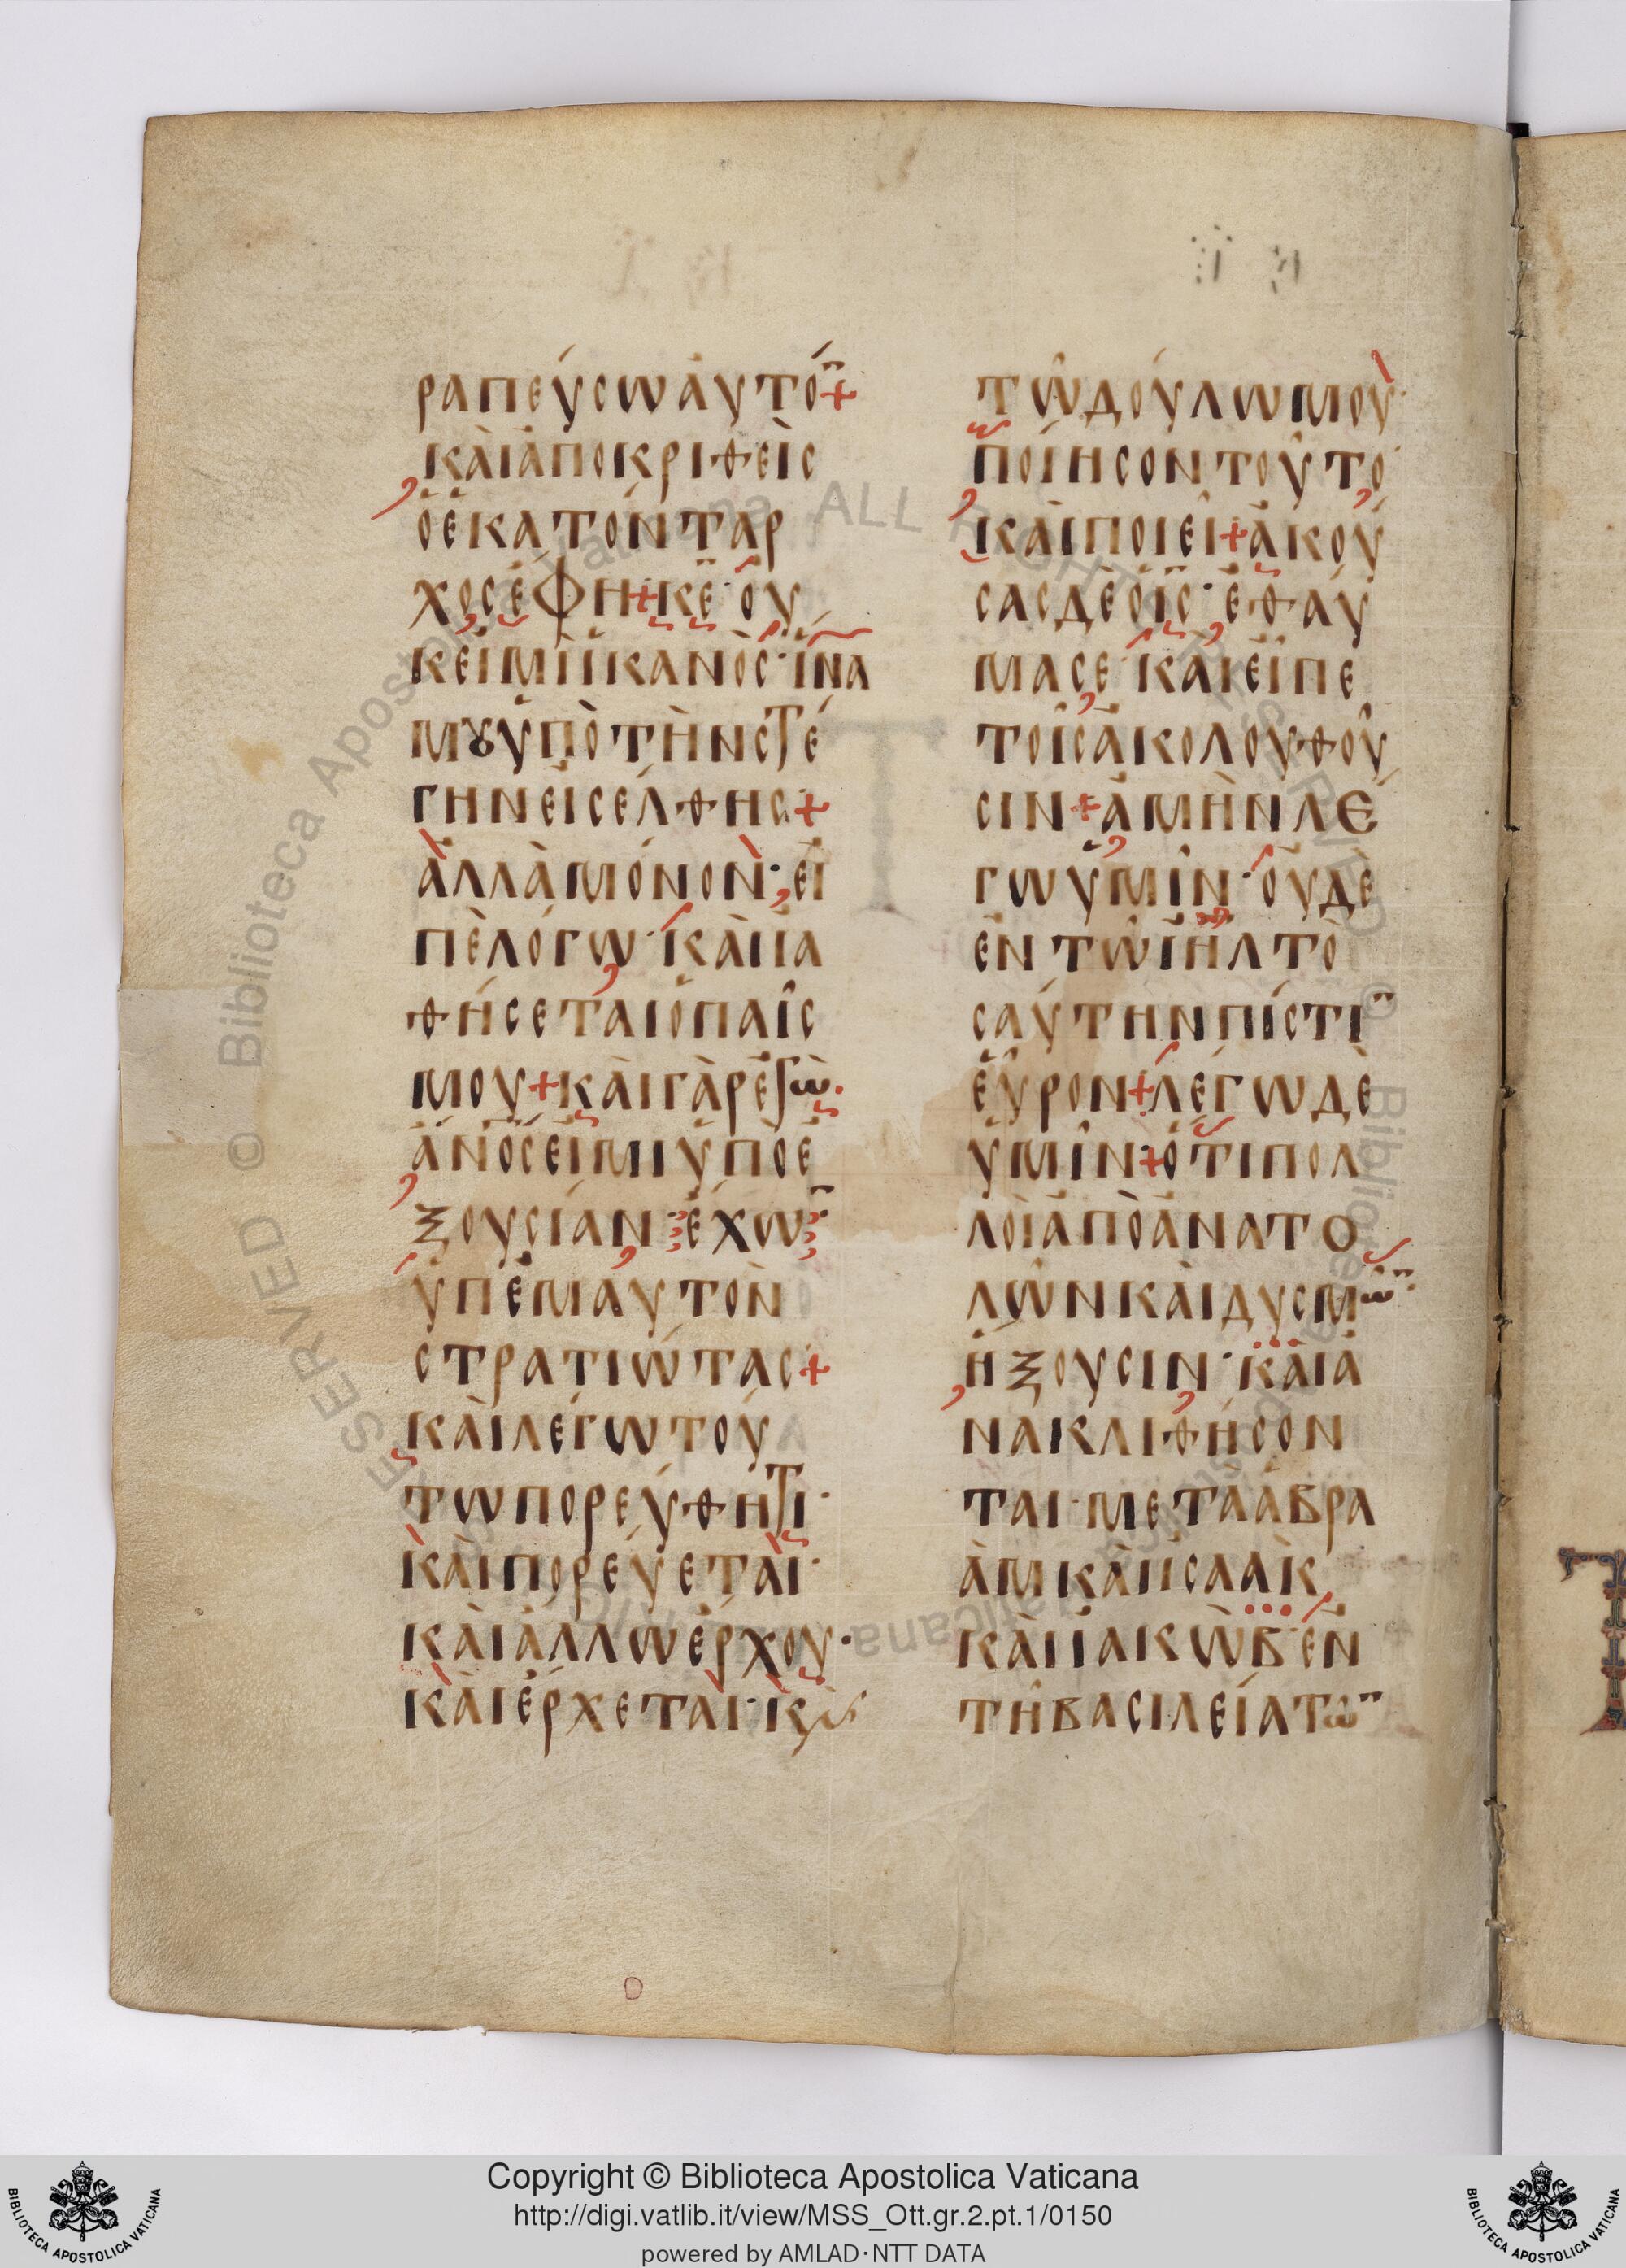 ραπεύσω ἀυτό̅ +
κὰι ἀποκριθεὶς
ὁ ἑκατόνταρ
χος ἔφη + κ̅ε̅ · ὀυ
κ εἰμὶ ἱκανὸς · ἵνα
μȣ ὑπὸ τὴν στέ
γην εἰσέλθης +
ἀλλὰ μόνον · εἰ
πὲ λόγω · κὰι ἰα
θήσεται ὁ παῖς
μου + κὰι γὰρ ἐγὼ ·
ἄν̅ο̅ς εἰμι ὑπὸ ἐ
ξουσίαν · ἔχω̅
ὑπ ἐμαυτὸν
στρατιώτας +
κὰι λέγω τού
τω πορεύθητι ·
κὰι πορεύεται ·
κὰι ἄλλω ἔρχου ·
κὰι ἔρχεται · κ̀
τῶ δούλω μου ·
ποίησον τοῦτο ·
κὰι ποιεῖ + ἀκού
σας δὲ ὁ ι̅ς̅ · ἐθαύ
μασε · κὰι εἶπε
τοῖς ἀκολουθοῦ
σιν + ἀμὴν λέ
γω ὑμῖν · ὀυδὲ
ἐν τῶ ι̅η̅λ̅ το
σαύτην πίστι̅
εὗρον + λέγω δὲ
ὑμῖν + ὅτι πολ
λοὶ ἀπὸ ἀνατο
λῶν κὰι δυσμῶ̅ ·
ἥξουσιν · κὰι ἀ
νακλιθήσον
ται · μετὰ ἀβρα
ὰμ κὰι ἰσαὰκ
κὰι ἰακὼβ · ἐν
τῆ βασιλεία τω̅
Copyright © Biblioteca Apostolica Vaticana
http://digi.vatlib.it/view/MSS_Ott.gr.2.pt.1/0150
powered by AMLAD·NTT DATA